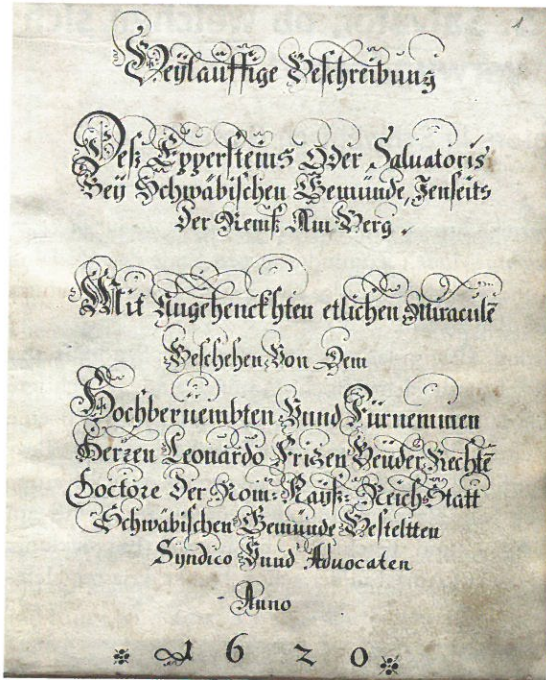 1
Beÿlauffige Beschreibung
Deß Eppersteins Oder Saluatoris
Bey Schwäbischen Gemünde, Jenseits
der Remß Am Berg.
Mit Angehenckhten etlichen Miraculē
Geschehen, Von Dem
Hochberuembten Vnnd Fürnemmen
Herren Leonardo Frizen Beÿder Rechtē
Doctore Der Röm: Kayß: Reich Statt
Schwäbischen Gemünde Bestellten
Syndico Vnnd Aduocaten
Anno
1620